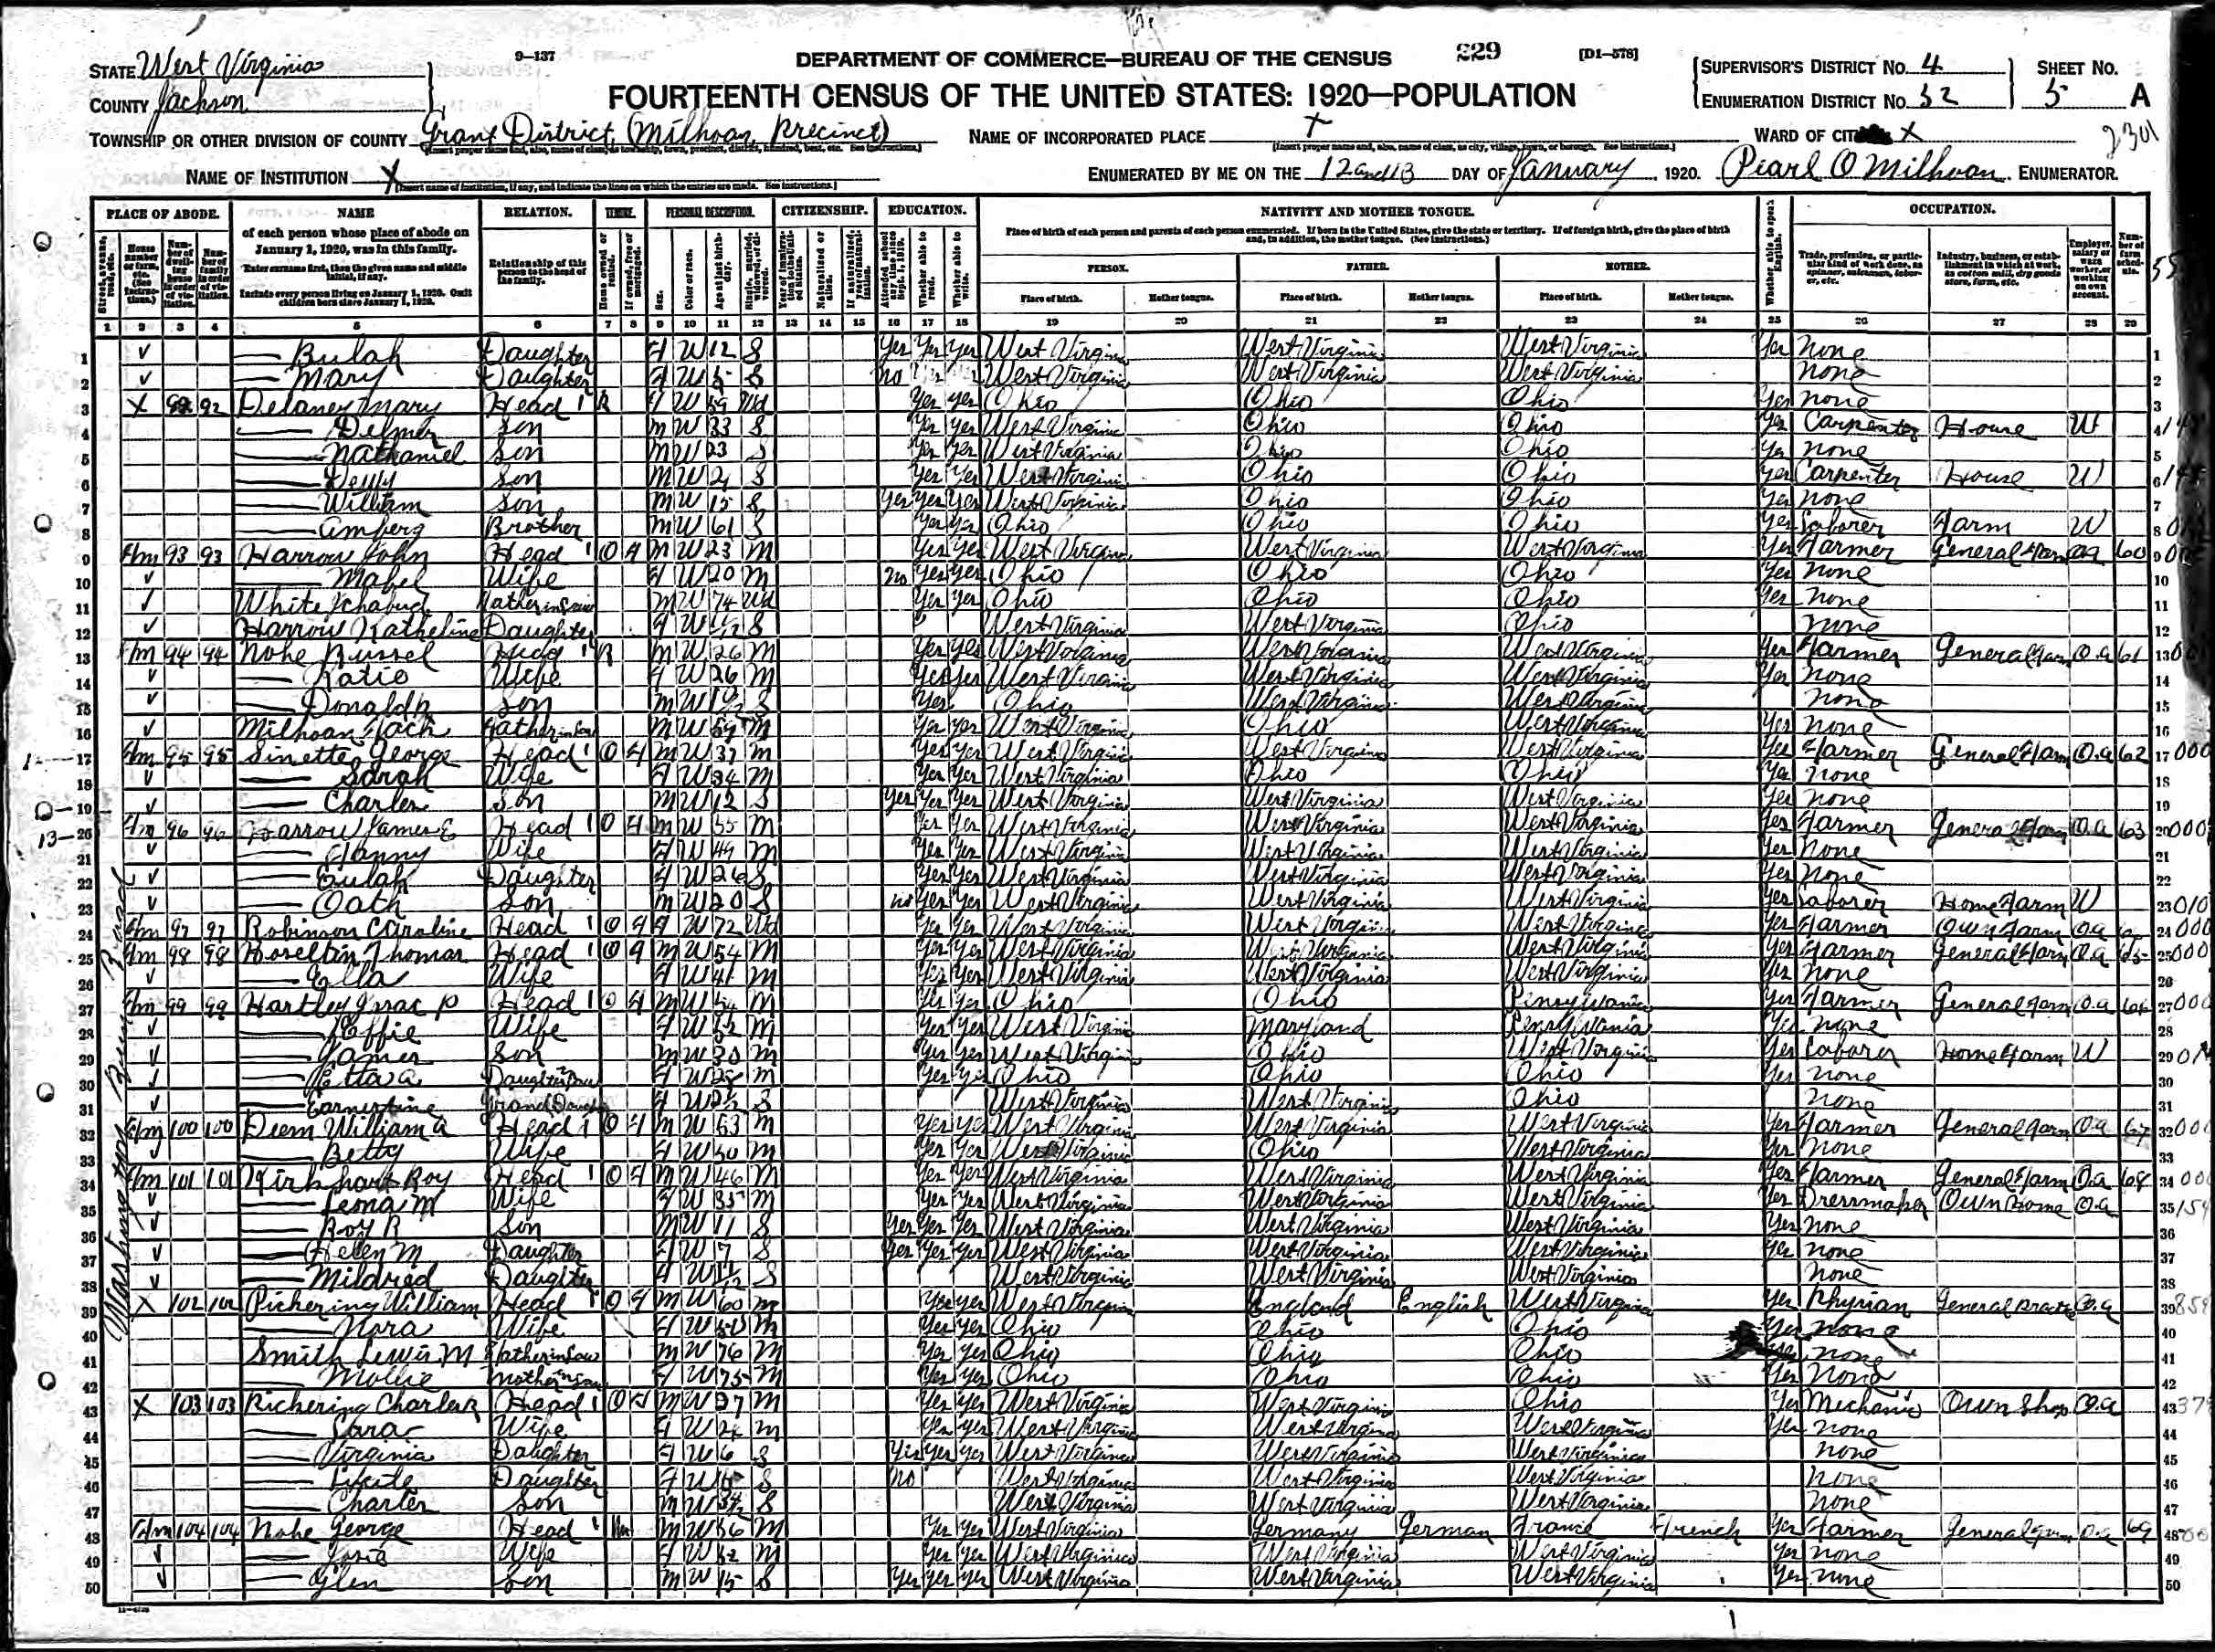 229
9—137
DEPARTMENT OF COMMERCE—BUREAU OF THE CENSUS
[D1—578]
STATE West Virginia
COUNTY Jackson
FOURTEENTH CENSUS OF THE UNITED STATES: 1920—POPULATION
SUPERVISOR'S DISTRICT NO. 4
ENUMERATION DISTRICT NO. 52
SHEET NO. 5 A
TOWNSHIP OR OTHER DIVISION OF COUNTY Grant District, (Milhoan, Precinct)
NAME OF INCORPORATED PLACE X
WARD OF CITY X
2301
NAME OF INSTITUTION X
ENUMERATED BY ME ON THE 12 and 13 DAY OF January, 1920. Pearl O Milhoan, ENUMERATOR.
PLACE OF ABODE. NAME RELATION. TENURE. PERSONAL DESCRIPTION. CITIZENSHIP. EDUCATION. NATIVITY AND MOTHER TONGUE. OCCUPATION.
of each person whose place of abode on January 1, 1920, was in this family.
Enter surname first, then the given name and middle initial, if any.
Include every person living on January 1, 1920. Omit children born since January 1, 1920.
Relationship of this person to the head of the family.
Place of birth of each person and parents of each person enumerated. If born in the United States, give the state or territory. If of foreign birth, give the place of birth and, in addition, the mother tongue. (See instructions.)
PERSON. FATHER. MOTHER.
Place of birth. Mother tongue. Place of birth. Mother tongue. Place of birth. Mother tongue.
1 2 3 4 5 6 7 8 9 10 11 12 13 14 15 16 17 18 19 20 21 22 23 24 25 26 27 28 29
1 — Bulah Daughter F W 12 S Yes Yes Yes West Virginia West Virginia West Virginia Yes none 1
2 — Mary Daughter F W 5 S no West Virginia West Virginia West Virginia none 2
3 X 92 92 Delaney Mary Head 1 R F W 59 Wd Yes Yes Ohio Ohio Ohio Yes none 3
4 — Delmer Son M W 33 S Yes Yes West Virginia Ohio Ohio Yes Carpenter House W 4
5 — Nathaniel Son M W 23 S Yes Yes West Virginia Ohio Ohio Yes none 5
6 — Son M W 21 S Yes Yes West Virginia Ohio Ohio Yes Carpenter House W 6
7 — William Son M W 15 S Yes Yes Yes West Virginia Ohio Ohio Yes none 7
8 — Amberg Brother M W 61 S Yes Yes Ohio Ohio Ohio Yes Laborer Farm W 8
9 Fm 93 93 Harrow John Head 1 O F M W 23 M Yes Yes West Virginia West Virginia West Virginia Yes Farmer General Farm OA 60 9
10 — Mabel Wife F W 20 M no Yes Yes Ohio Ohio Ohio Yes none 10
11 White Ichabud Father in Law M W 74 Wd Yes Yes Ohio Ohio Ohio Yes none 11
12 Harrow Katheline Daughter F W S West Virginia West Virginia Ohio none 12
13 Fm 94 94 Nohe Russel Head 1 R M W 26 M Yes Yes West Virginia West Virginia West Virginia Yes Farmer General Farm O.A 61 13
14 — Katie Wife F W 26 M Yes Yes West Virginia West Virginia West Virginia Yes none 14
15 — Donald Son M W S Yes Ohio West Virginia West Virginia none 15
16 Milhoan Zach Father in Law M W 59 M Yes Yes West Virginia Ohio West Virginia Yes none 16
17 Fm 95 95 Sinette George Head 1 O F M W 37 M Yes Yes West Virginia West Virginia West Virginia Yes Farmer General Farm O.A 62 17
18 — Sarah Wife F W 34 M Yes Yes West Virginia Ohio Ohio Yes none 18
19 — Charles Son M W 12 S Yes Yes Yes West Virginia West Virginia West Virginia Yes none 19
20 Fm 96 96 Harrow James E Head 1 O F M W 55 M Yes Yes West Virginia West Virginia West Virginia Yes Farmer General Farm O.A 63 20
21 — Fanny Wife F W 49 M Yes Yes West Virginia West Virginia West Virginia Yes none 21
22 — Eulah Daughter F W 26 S Yes Yes West Virginia West Virginia West Virginia Yes none 22
23 — Oath Son M W 20 S no Yes Yes West Virginia West Virginia West Virginia Yes Laborer Home Farm W 23
24 Fm 97 97 Robinson Caroline Head 1 O F F W 72 Wd Yes Yes West Virginia West Virginia West Virginia Yes Farmer Own Farm OA 24
25 Fm 98 98 Thomas Head 1 O F M W 54 M Yes Yes West Virginia West Virginia West Virginia Yes Farmer General Farm O.A 65 25
26 — Ella Wife F W 41 M Yes Yes West Virginia West Virginia West Virginia Yes none 26
27 Fm 99 99 Hartley Isaac P Head 1 O F M W 54 M Yes Yes Ohio Ohio Pensylvania Yes Farmer General Farm O.A 66 27
28 — Effie Wife F W 52 M Yes Yes West Virginia Maryland Pensylvania Yes none 28
29 — James Son M W 30 M Yes Yes West Virginia Ohio West Virginia Yes Laborer Home Farm W 29
30 — Etta A Daughter in Law F W M Yes Yes Ohio Ohio Ohio Yes none 30
31 — Earnestine Grand Daughter F W S West Virginia West Virginia Ohio none 31
32 Fm 100 100 Diem William A Head 1 O F M W 53 M Yes Yes West Virginia West Virginia West Virginia Yes Farmer General Farm O.A 67 32
33 — Betty Wife F W 50 M Yes Yes West Virginia Ohio West Virginia Yes none 33
34 Fm 101 101 Kirkhart Roy Head 1 O F M W 46 M Yes Yes West Virginia West Virginia West Virginia Yes Farmer General Farm O.A 68 34
35 — Leona M Wife F W 35 M Yes Yes West Virginia West Virginia West Virginia Yes Dressmaker Own Home O.A 35
36 — Roy R Son M W 11 S Yes Yes Yes West Virginia West Virginia West Virginia Yes none 36
37 — Helen M Daughter F W 7 S Yes Yes Yes West Virginia West Virginia West Virginia Yes none 37
38 — Mildred Daughter F W S West Virginia West Virginia West Virginia none 38
39 X 102 102 Pickering William Head 1 O F M W 60 M Yes Yes West Virginia England English West Virginia Yes Phyisian General Practice O.A 39
40 — Nora Wife F W M Yes Yes Ohio Ohio Ohio Yes none 40
41 Smith Lewis M Father in Law M W 76 M Yes Yes Ohio Ohio Ohio Yes none 41
42 — Mollie Mother in Law F W 75 M Yes Yes Ohio Ohio Ohio Yes None 42
43 X 103 103 Pickering Charles R Head 1 O F M W 27 M Yes Yes West Virginia West Virginia Ohio Yes Mechanic Own Shop O.A 43
44 — Sara Wife F W 24 M Yes Yes West Virginia West Virginia West Virginia Yes none 44
45 — Virginia Daughter F W 6 S Yes Yes Yes West Virginia West Virginia West Virginia none 45
46 — Lucile Daughter F W 5 S no West Virginia West Virginia West Virginia none 46
47 — Charles Son M W S West Virginia West Virginia West Virginia none 47
48 Fm 104 104 Nohe George Head 1 M W 56 M Yes Yes West Virginia Germany German France French Yes Farmer General Farm OA 69 48
49 — Josie Wife F W 52 M Yes Yes West Virginia West Virginia West Virginia Yes none 49
50 — Glen Son M W 15 S Yes Yes Yes West Virginia West Virginia West Virginia Yes none 50
Washington Road